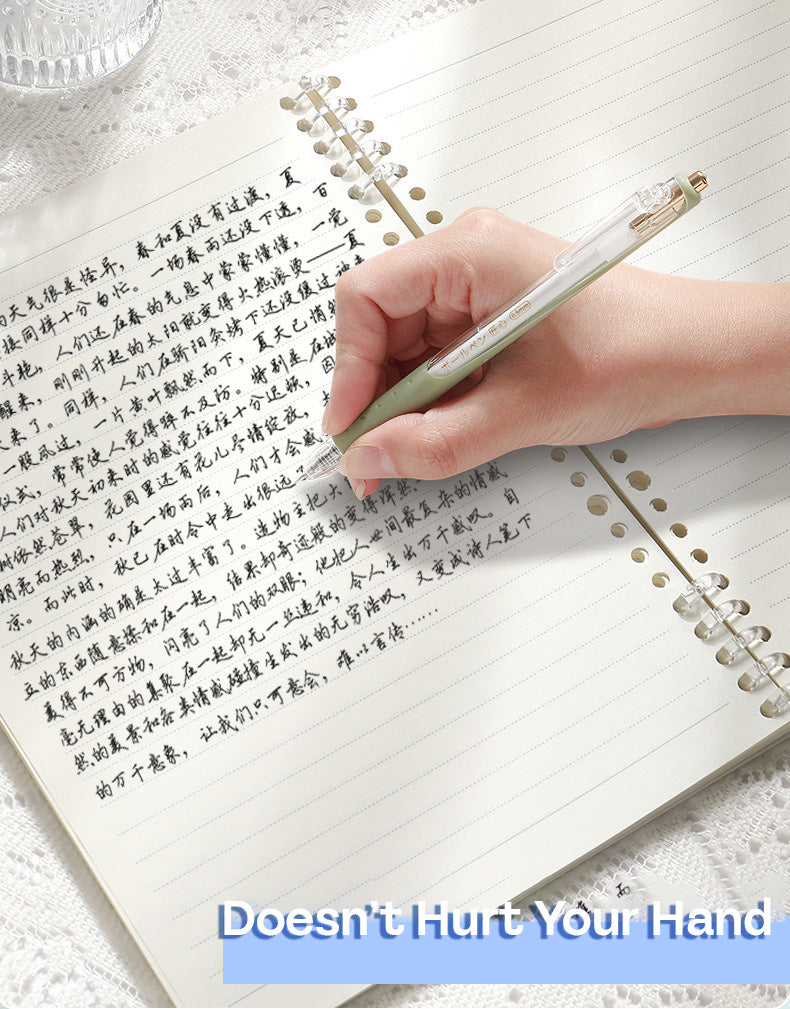 的天气很是怪异，春和夏没有过渡，夏
接同样十分匆忙。一场春雨还没下透，百
斗艳，人们还在春的气息中蒙蒙懂懂，一觉
醒来，刚刚升起的太阳就变得火热滚烫——夏
来了。同样，人们在骄阳炙烤下还没缓过神来
一股风过，一片黄叶飘然而下，夏天已悄
仪式，常常使人觉得猝不及防。特别是在
人们对秋天初来时的感觉往往十分迟顿，因
树依然苍翠，花园里还有花儿尽情绽放，
明亮而热烈，只在一场雨后，人们才会感
凉。而此时，秋已在时令中走出很远了
秋天的内涵的确是太过丰富了。造物主把大
立的东西随意糅和在一起，结果却奇迹般的变得浑然
美得不可方物，闪亮了人们的双眼；他把人世间最复杂的情感
毫无理由的集聚在一起却无一丝违和，令人生出万千感叹。自
然的美景和各类情感碰撞生发出的无穷浩叹，又变成诗人笔下
的万千意象，让我们只可意会，难以言传……
ボールペン 匠心 0.5mm
而
Doesn't Hurt Your Hand